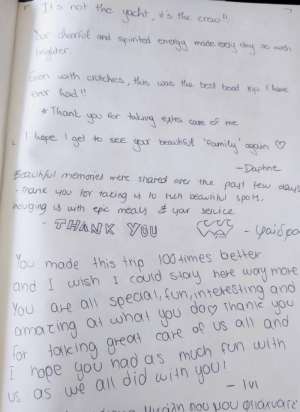 It's not the yacht, it's the crew!!
Your cheerful and spirited energy made every day so much
brighter.
Even with crutches, this was the best boat trip I have
ever had!!
* Thank you for taking extra care of me
I hope I get to see your beautiful "family" again ♡
- Daphne
Beautiful memories were shared over the past few days
- Thank you for taking us to such beautiful spots,
hugging us with epic meals & your service
- THANK YOU
You made this trip 100 times better
and I wish I could stay here way more
You are all special, fun, interesting and
amazing at what you do♡ Thank you
for taking great care of us all and
I hope you had as much fun with
us as we all did with you!
- Ivi